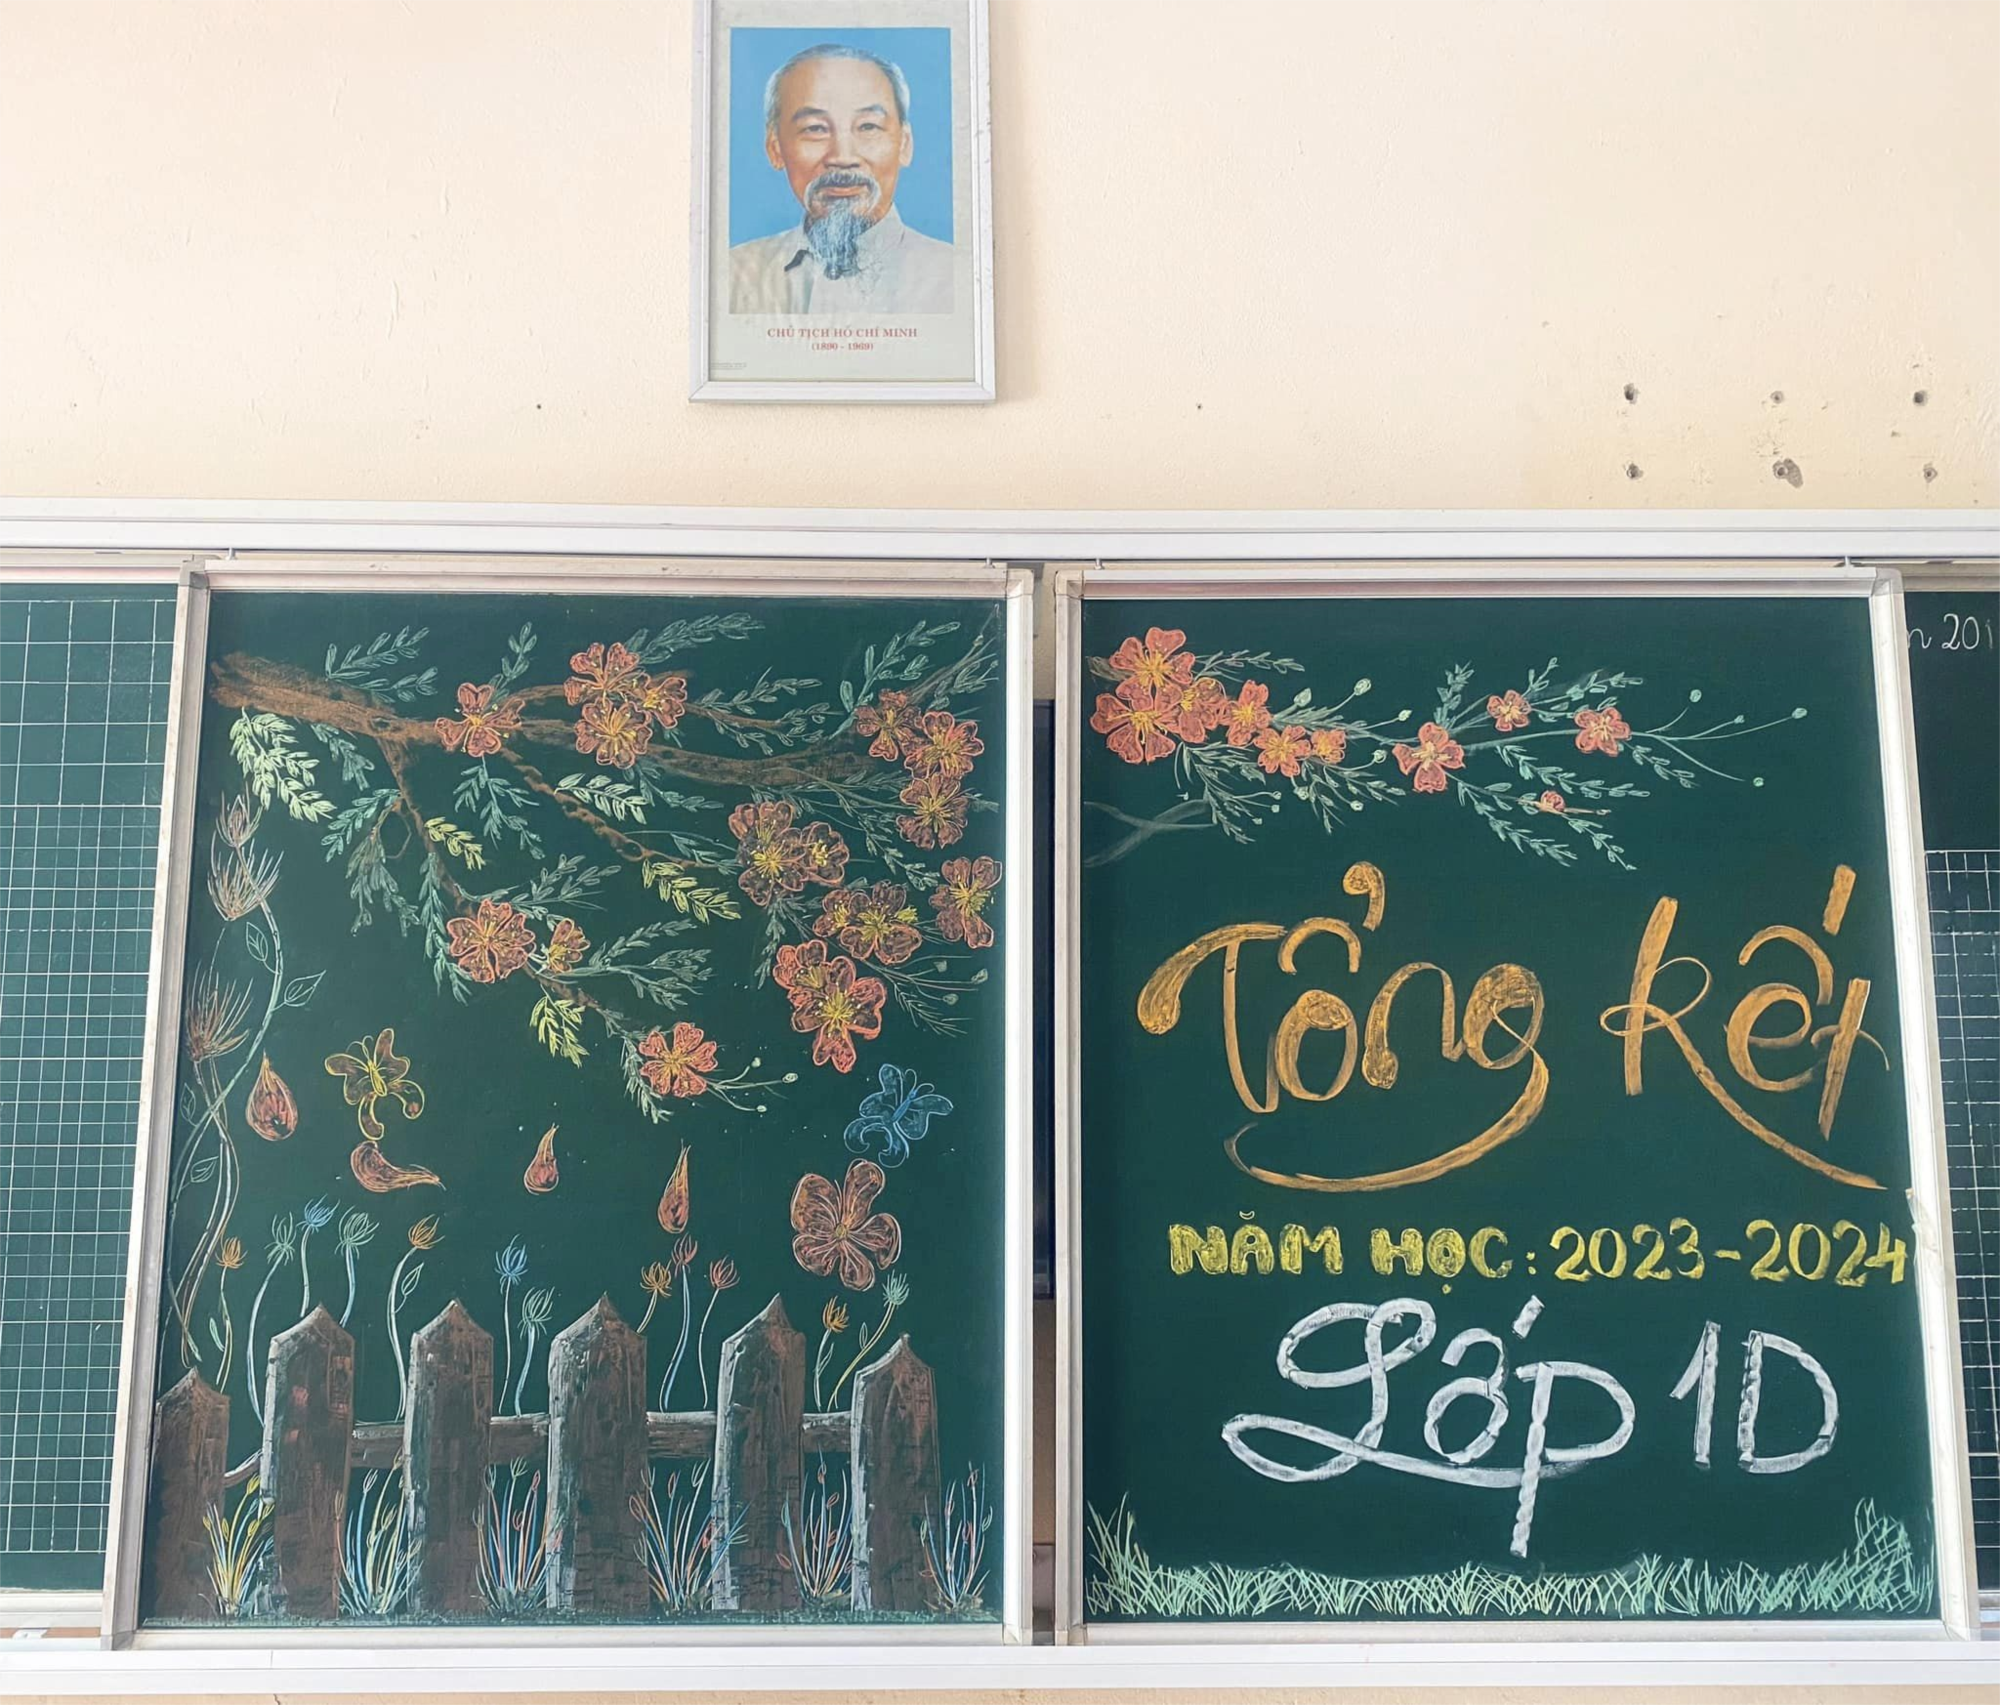 CHỦ TỊCH HỒ CHÍ MINH
(1890 - 1969)
Tổng kết
NĂM HỌC: 2023-2024
Lớp 1D